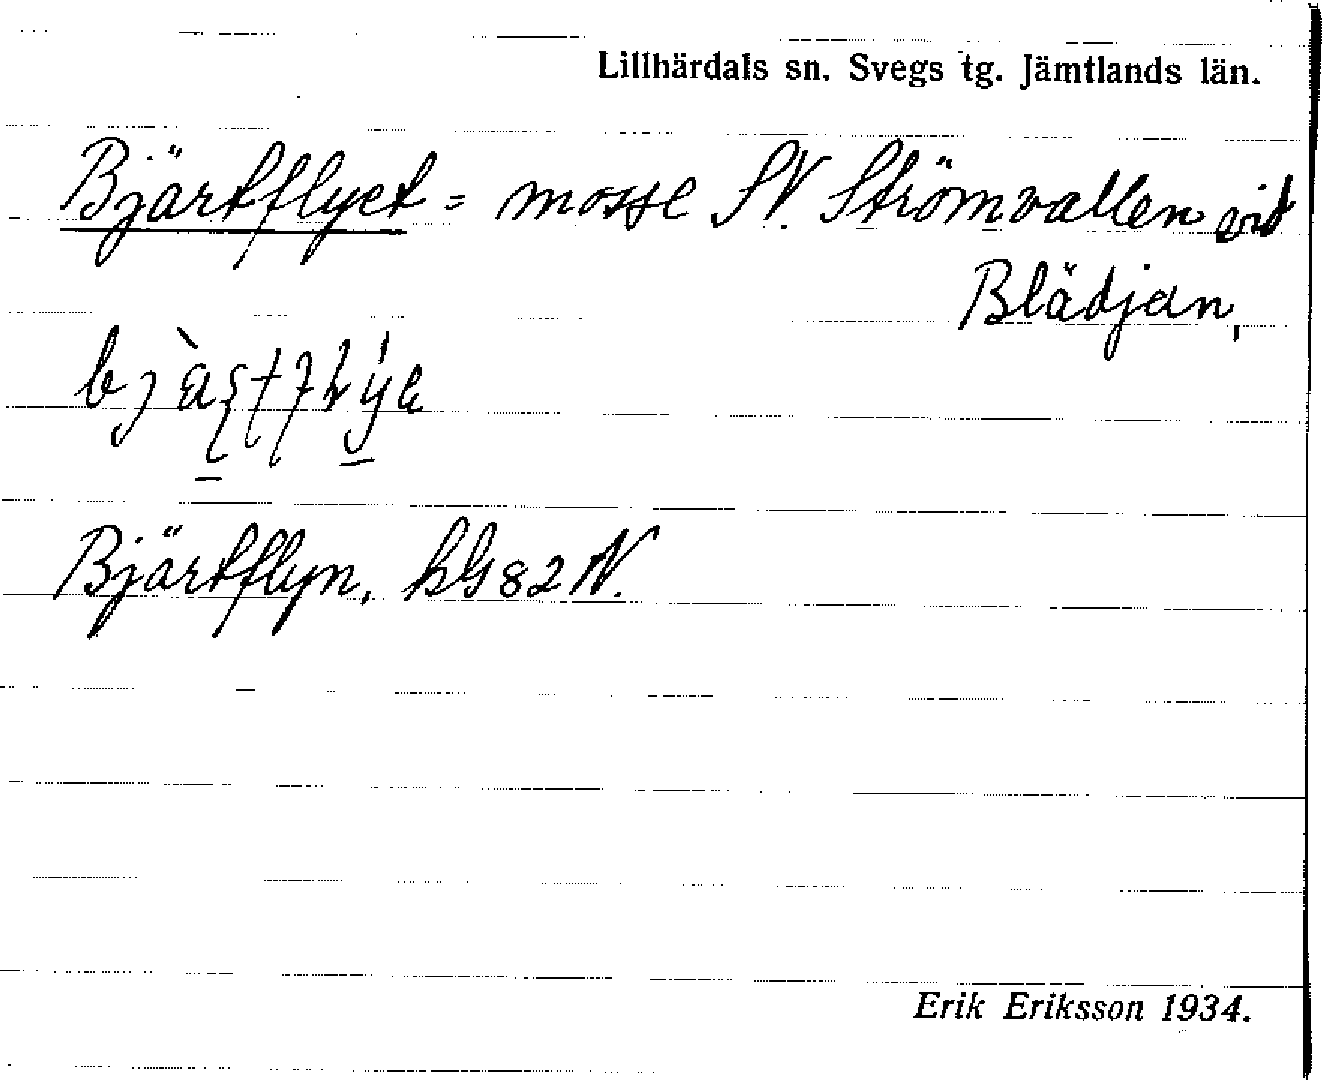 Lillhärdals sn. Svegs tg. Jämtlands län.
Bjärtflyet = mosse SV. Strömvallen vid
Blädjan,
Bjärtflyn, hG82N.
Erik Eriksson 1934.